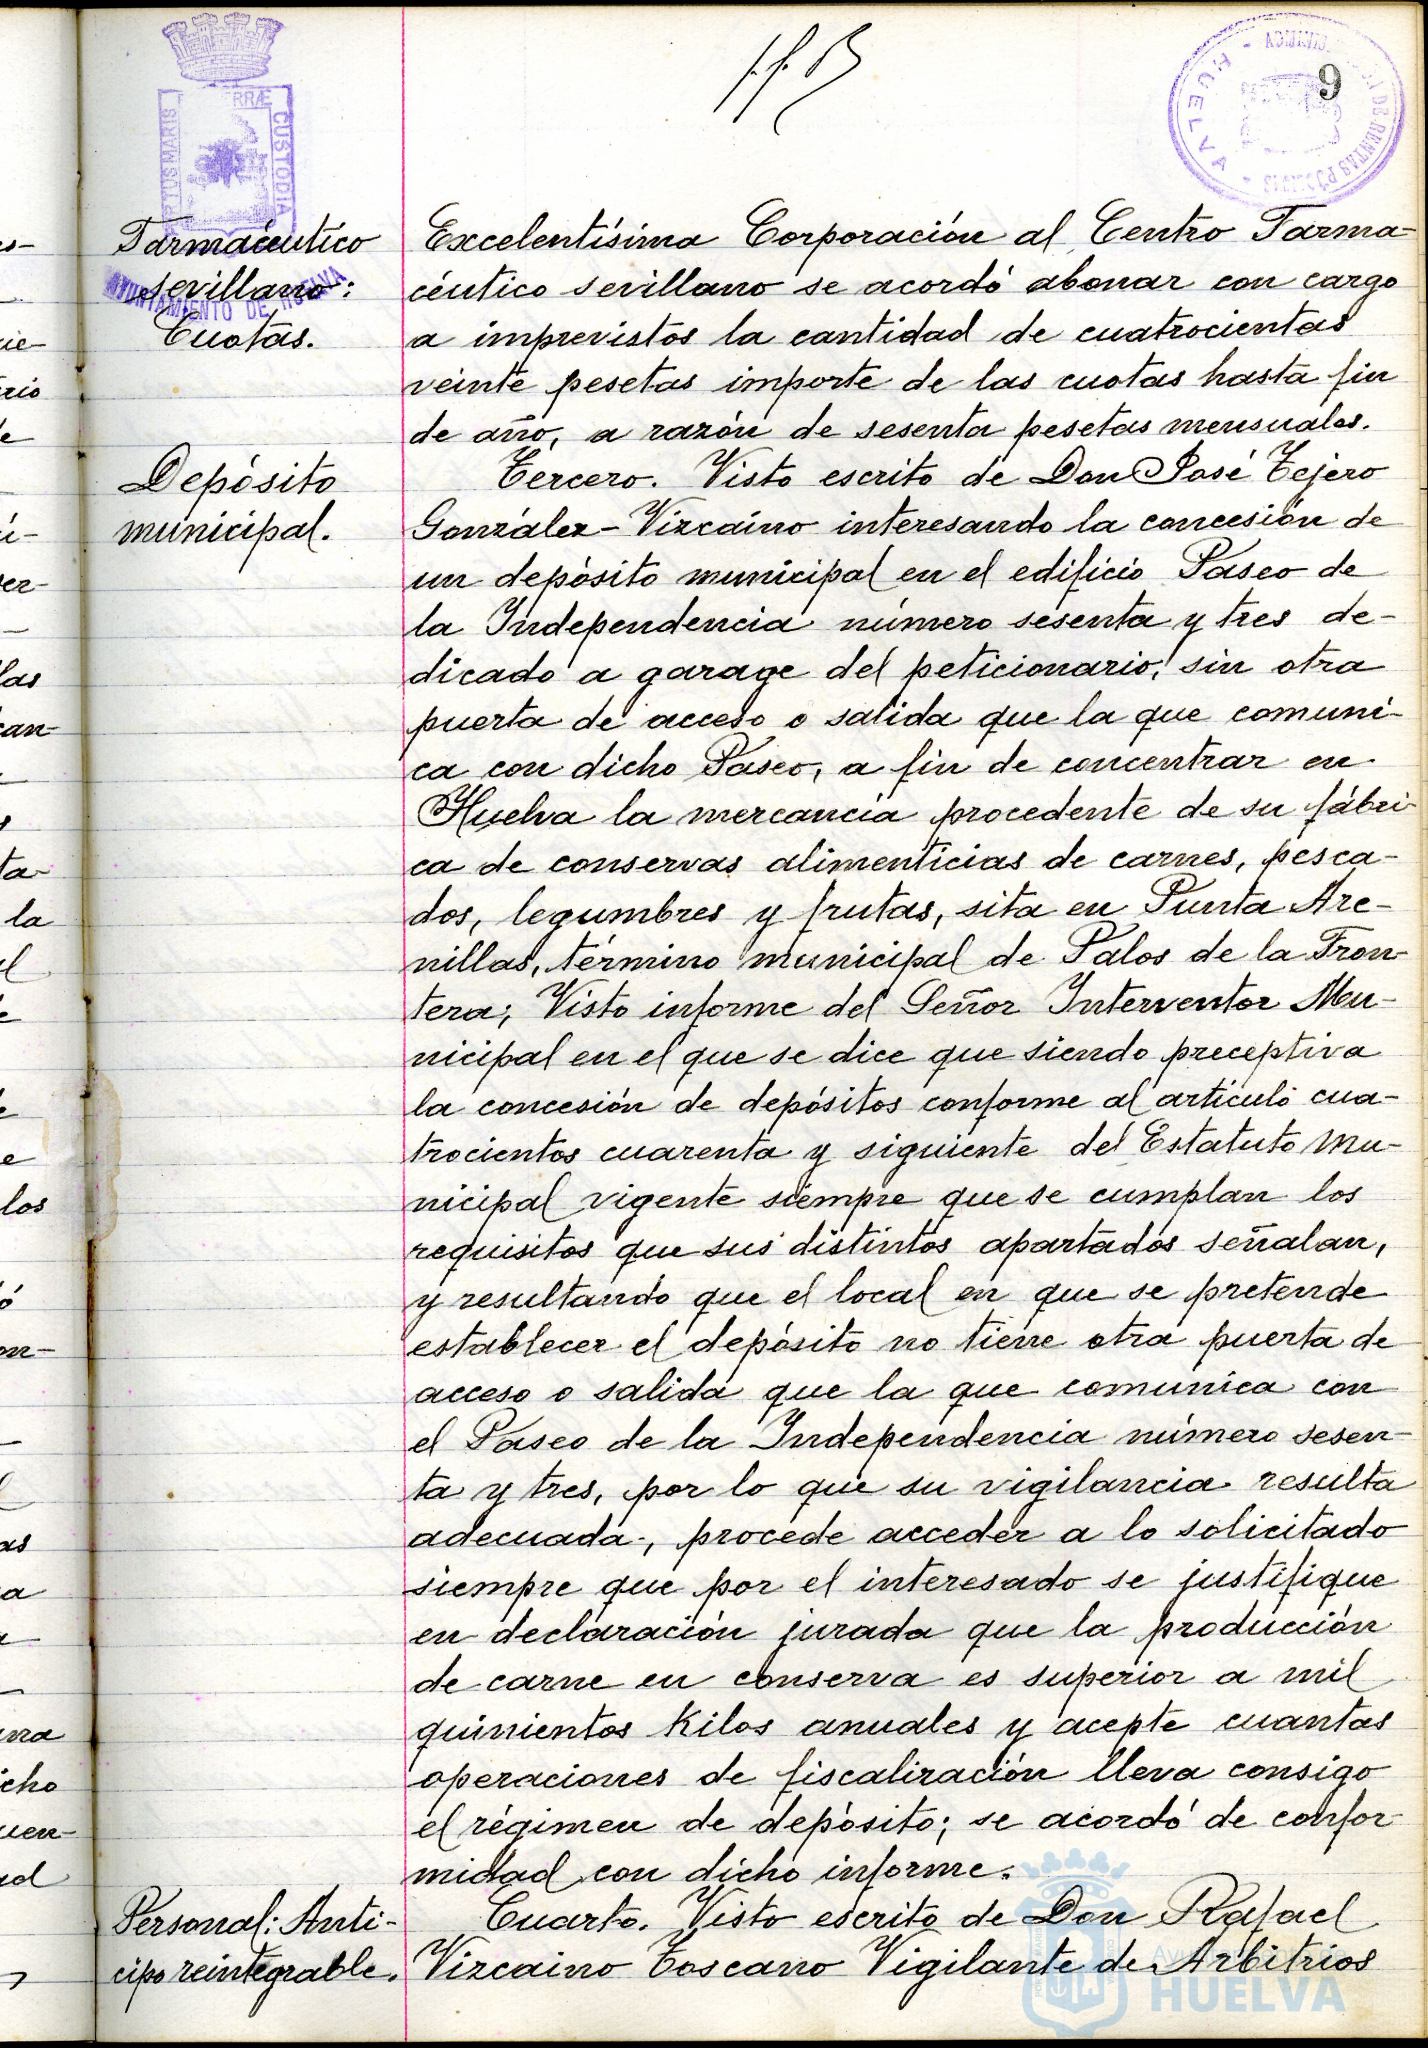 9
Farmacéutico
sevillano:
Cuotas.
Excelentísima Corporación al Centro Farma-
céutico sevillano se acordó abonar con cargo
a imprevistos la cantidad de cuatrocientas
veinte pesetas importe de las cuotas hasta fin
de año, a razón de sesenta pesetas mensuales.
Depósito
municipal.
Tercero. Visto escrito de Don José Tejero
González-Vizcaíno interesando la concesión de
un depósito municipal en el edificio Paseo de
la Independencia número sesenta y tres de-
dicado a garage del peticionario, sin otra
puerta de acceso o salida que la que comuni-
ca con dicho Paseo, a fin de concentrar en
Huelva la mercancía procedente de su fábri-
ca de conservas alimenticias de carnes, pesca-
dos, legumbres y frutas, sita en Punta Are-
nillas, término municipal de Palos de la Fron-
tera; Visto informe del Señor Interventor Mu-
nicipal en el que se dice que siendo preceptiva
la concesión de depósitos conforme al artículo cua-
trocientos cuarenta y siguiente del Estatuto Mu-
nicipal vigente siempre que se cumplan los
requisitos que sus distintos apartados señalan,
y resultando que el local en que se pretende
establecer el depósito no tiene otra puerta de
acceso o salida que la que comunica con
el Paseo de la Independencia número sesen-
ta y tres, por lo que su vigilancia resulta
adecuada, procede acceder a lo solicitado
siempre que por el interesado se justifique
en declaración jurada que la producción
de carne en conserva es superior a mil
quinientos kilos anuales y acepte cuantas
operaciones de fiscalización lleva consigo
el régimen de depósito; se acordó de confor-
midad con dicho informe.
Personal: Anti-
cipo reintegrable.
Cuarto. Visto escrito de Don Rafael
Vizcaino Toscano Vigilante de Arbitrios
AYUNTAMIENTO DE HUELVA
CUSTODIA
HUELVA
HUELVA